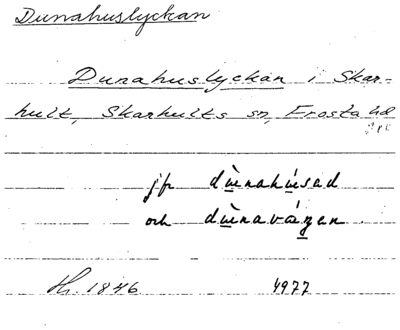 Dunahuslyckan
Dunahuslyckan i Skar-
hult, Skarhults sn, Frosta hd
jfr dùnahúsad
och dùnavágen.
1846 4977